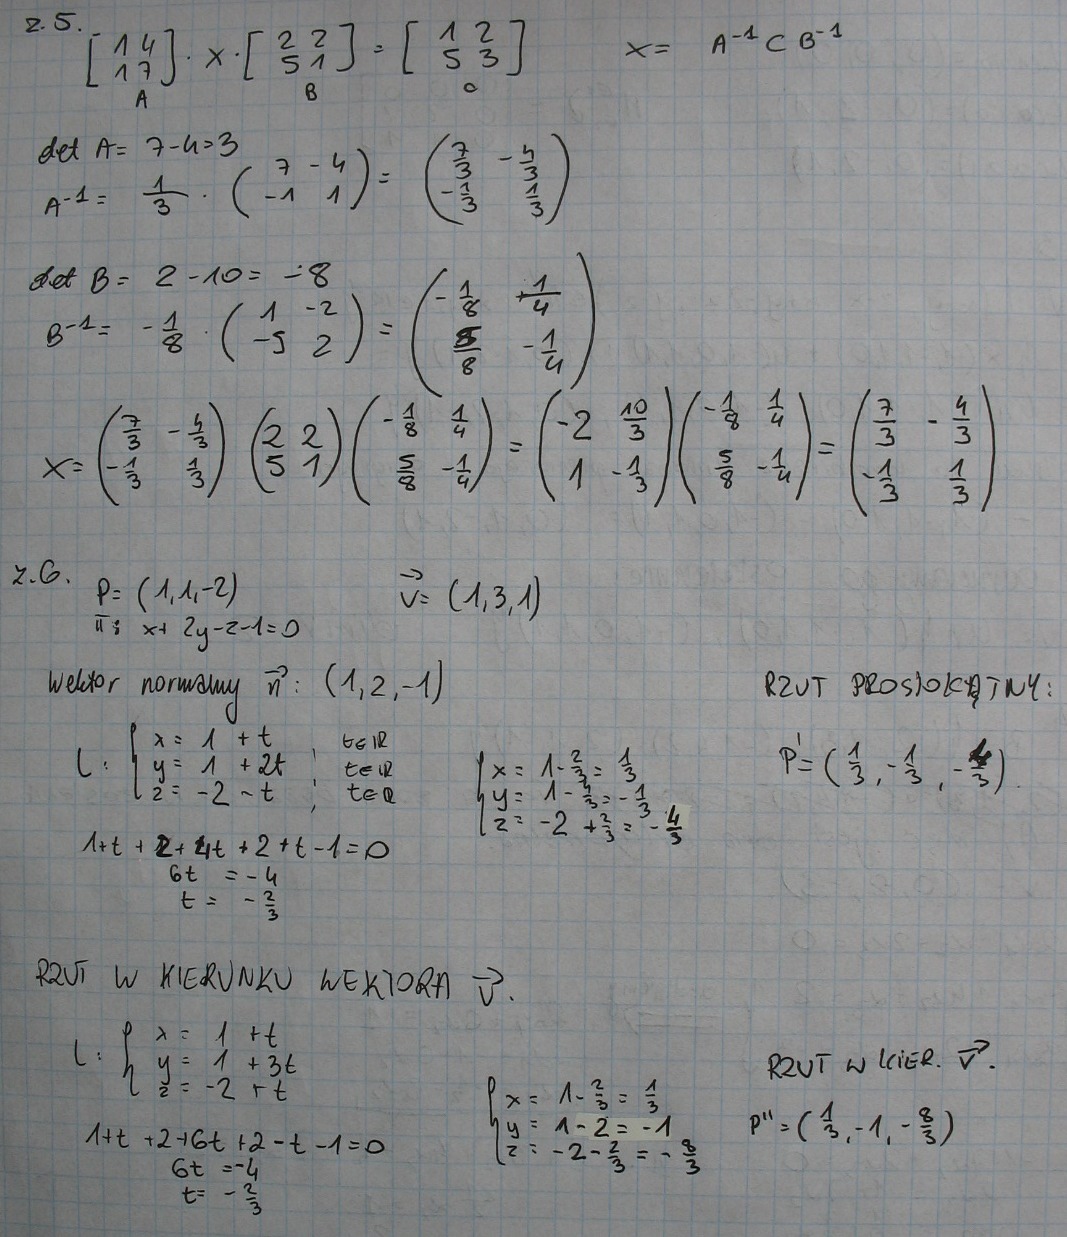 z.5.
[1 4 1 7] · X · [2 2 5 1] = [1 2 5 3] X = A⁻¹ C B⁻¹
A B C
det A = 7-4=3
A⁻¹ = 1/3 · (7 -4 -1 1) = (7/3 -4/3 -1/3 1/3)
det B = 2-10 = -8
B⁻¹ = -1/8 · (1 -2 -5 2) = (-1/8 +1/4 5/8 -1/4)
X = (7/3 -4/3 -1/3 1/3) (2 2 5 1) (-1/8 1/4 5/8 -1/4) = (-2 10/3 1 -1/3) (-1/8 1/4 5/8 -1/4) = (7/3 -4/3 -1/3 1/3)
z.6.
P = (1,1,-2) v⃗ = (1,3,1)
π: x+2y-z-1=0
Wektor normalny n⃗: (1,2,-1)
RZUT PROSTOKĄTNY:
l: { x = 1 + t ; t∈ℝ
y = 1 + 2t ; t∈ℝ
z = -2 - t ; t∈ℝ
{ x = 1-2/3 = 1/3
y = 1-4/3 = -1/3
z = -2 +2/3 = -4/3
P' = (1/3, -1/3, -4/3)
1+t + 2+4t + 2+t-1=0
6t = -4
t = -2/3
RZUT W KIERUNKU WEKTORA v⃗.
l: { x = 1 +t
y = 1 +3t
z = -2 +t
{ x = 1-2/3 = 1/3
y = 1-2 = -1
z = -2-2/3 = -8/3
RZUT W KIER. v⃗.
P'' = (1/3, -1, -8/3)
1+t +2+6t+2-t-1=0
6t = -4
t = -2/3